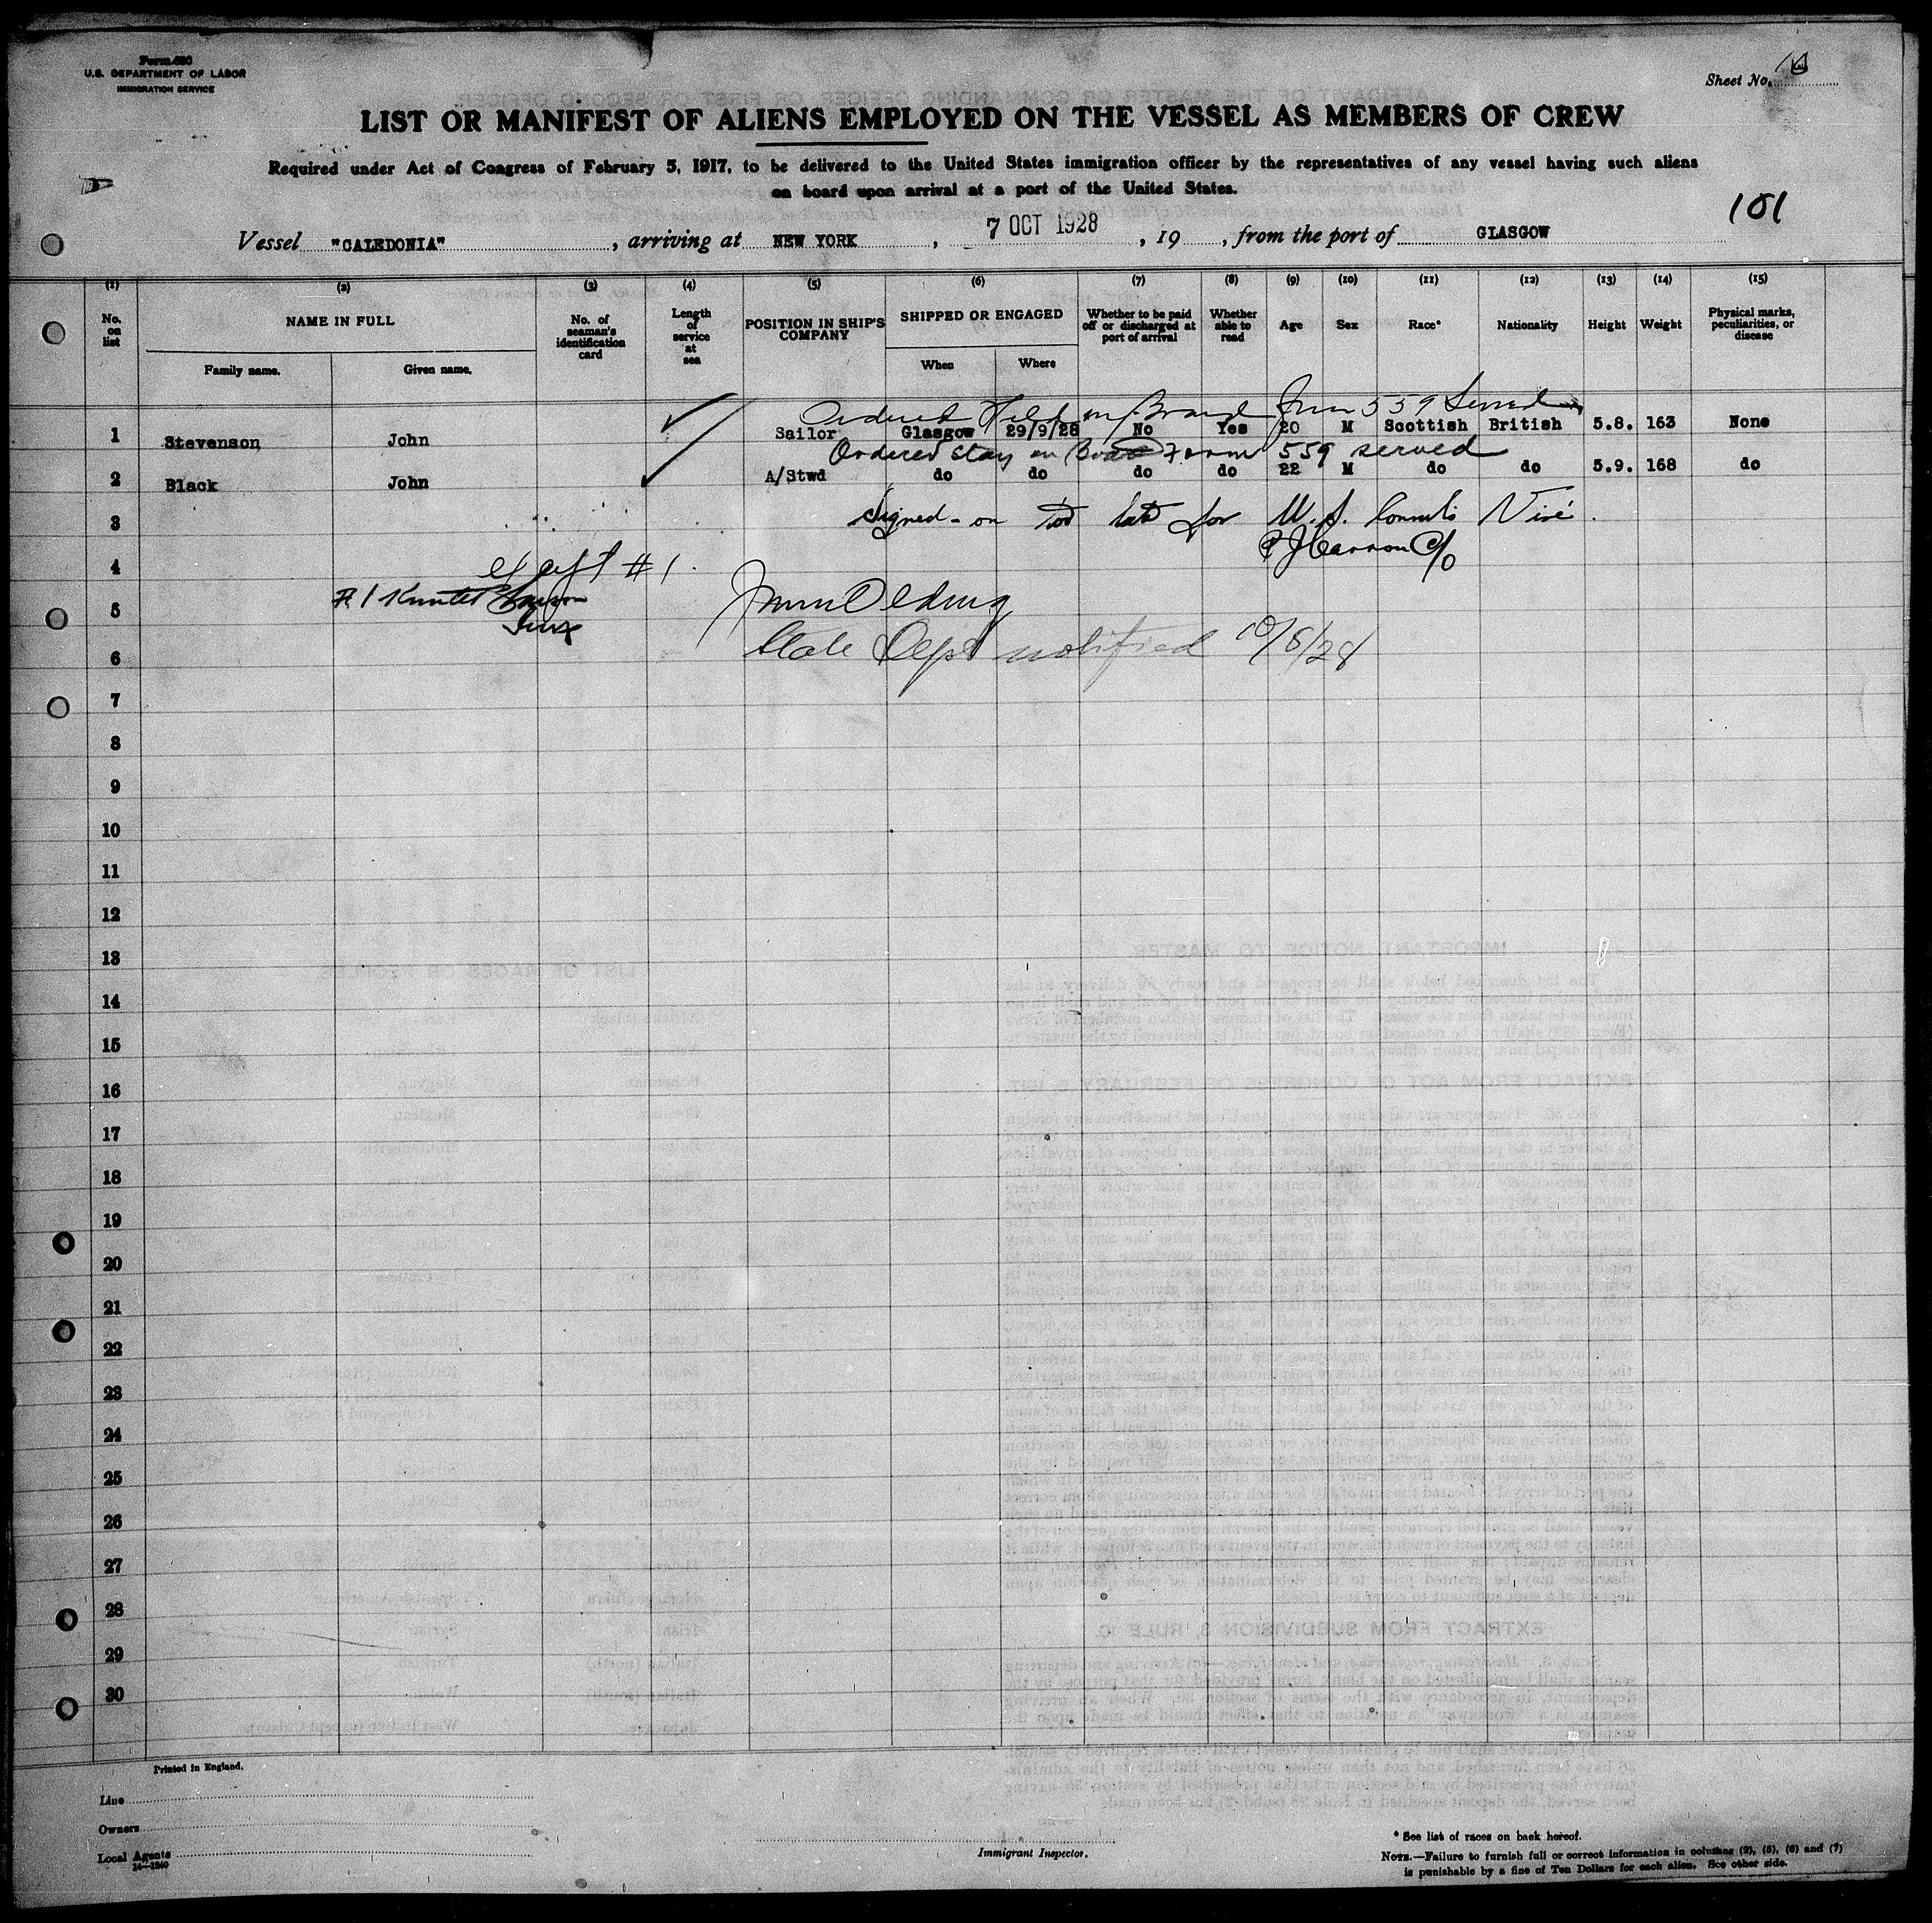 Form 680
U.S. DEPARTMENT OF LABOR
IMMIGRATION SERVICE
Sheet No.
LIST OR MANIFEST OF ALIENS EMPLOYED ON THE VESSEL AS MEMBERS OF CREW
Required under Act of Congress of February 5, 1917, to be delivered to the United States immigration officer by the representatives of any vessel having such aliens
on board upon arrival at a port of the United States.
101
Vessel "CALEDONIA", arriving at NEW YORK, 7 OCT 1928, 19 , from the port of GLASGOW
(1) (2) (3) (4) (5) (6) (7) (8) (9) (10) (11) (12) (13) (14) (15)
No. on list
NAME IN FULL
Family name. Given name.
No. of seaman's identification card
Length of service at sea
POSITION IN SHIP'S COMPANY
SHIPPED OR ENGAGED
When Where
Whether to be paid off or discharged at port of arrival
Whether able to read
Age Sex Race* Nationality Height Weight
Physical marks, peculiarities, or disease
Ordered Held on Board Form 559 Served
1 Stevenson, John Sailor Glasgow 29/9/28 No Yes 20 M Scottish British 5.8. 163 None
Ordered stay on Board Form 559 served
2 Black John A/Stwd do do do do 22 M do do 5.9. 168 do
3 Signed-on too late for U.S. Consul's Visé.
P J Cannon C/O
4
# 1
5
6 State Dept notified 10/8/28
7
8
9
10
11
12
13
14
15
16
17
18
19
20
21
22
23
24
25
26
27
28
29
30
Printed in England.
Line
Owners
Local Agents
14—1240
Immigrant Inspector.
* See list of races on back hereof.
NOTE.—Failure to furnish full or correct information in columns (2), (5), (6) and (7)
is punishable by a fine of Ten Dollars for each alien. See other side.